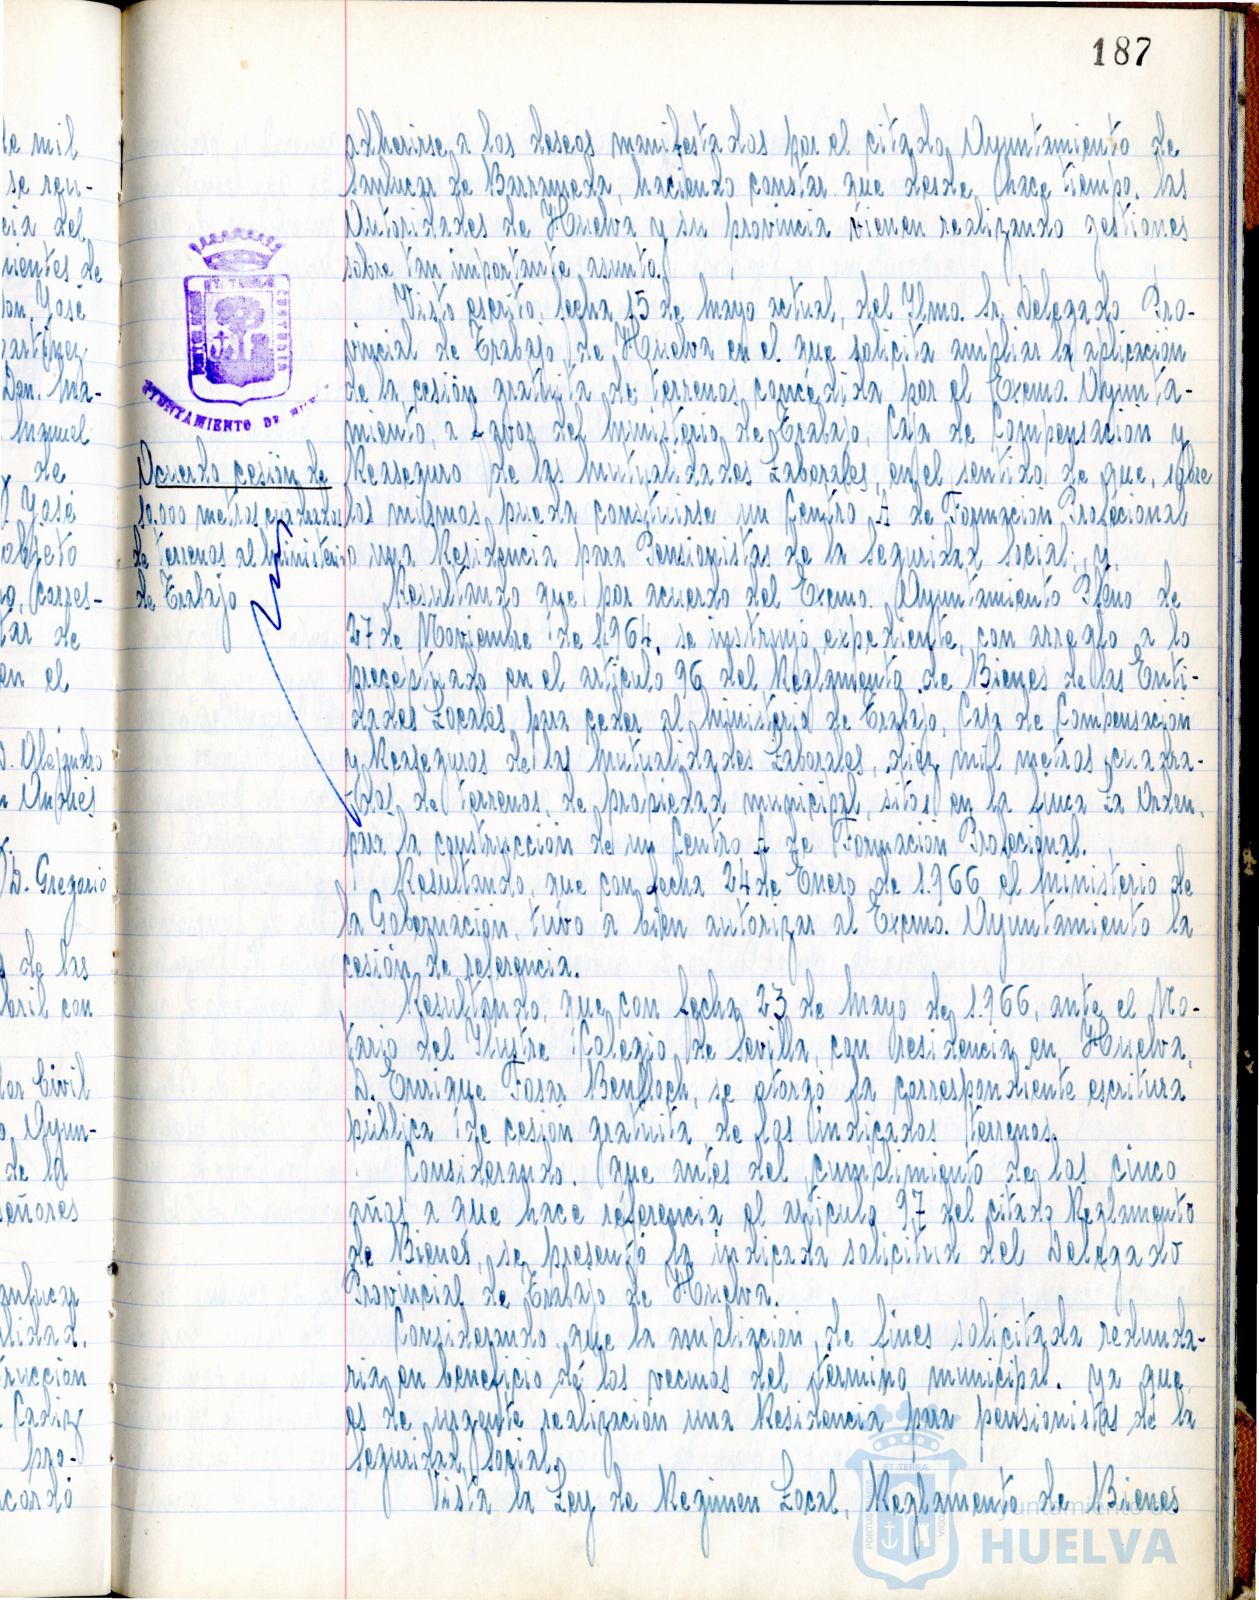 187
adherirse a los deseos manifestados por el citado Ayuntamiento de
Sanlucar de Barrameda, haciendo constar que desde hace tiempo, las
Autoridades de Huelva y su provincia vienen realizando gestiones
sobre tan importante asunto.
Visto escrito, fecha 15 de Mayo actual, del Ilmo. Sr. Delegado Pro-
vincial de Trabajo de Huelva en el que solicita ampliar la aplicación
de la cesión gratuita de terrenos concedida por el Excmo. Ayunta-
miento, a favor del Ministerio de Trabajo, Caja de Compensación y
Reaseguro de las Mutualidades Laborales, en el sentido de que, sobre
los mismos pueda construirse un Centro A de Formación Profecional
o una Residencia para Pensionistas de la Seguridad Social; y,
Resultando que por acuerdo del Excmo. Ayuntamiento Pleno de
27 de Noviembre de 1.964, se instruyó expediente, con arreglo a lo
preceptuado en el artículo 96 del Reglamento de Bienes de las Enti-
dades Locales para ceder al Ministerio de Trabajo, Caja de Compensación
y Reaseguros de las Mutualidades Laborales, diez mil metros cuadra-
dos de terrenos, de propiedad municipal, sitos en la finca La Orden,
para la construcción de un Centro A de Formación Profecional.
Resultando, que con fecha 24 de Enero de 1.966 el Ministerio de
la Gobernación, tuvo a bien autorizar al Excmo. Ayuntamiento la
cesión de referencia.
Resultando, que con fecha 23 de Mayo de 1.966, ante el No-
tario del Ilustre Colegio de Sevilla, con residencia en Huelva,
D. Enrique Fosar Benlloch, se otorgó la correspondiente escritura
pública de cesión gratuita de los indicados terrenos.
Considerando. Que antes del cumplimiento de los cinco
años a que hace referencia el articulo 97 del citado Reglamento
de Bienes, se presentó la indicada solicitud del Delegado
Provincial de Trabajo de Huelva.
Considerando, que la ampliación de fines solicitada redunda-
ria en beneficio de los vecinos del termino municipal. ya que,
es de urgente realización una Residencia para pensionistas de la
Seguridad Social.
Vista la Ley de Regimen Local, Reglamento de Bienes
AYUNTAMIENTO DE
Acuerdo cesión de
10.000 metros cuadrados
de terrenos al Ministerio
de Trabajo
de mil
se reu-
cia del
nientes de
Don, José
Martinez
Don. Ma-
Manuel
de
José
objeto
corres-
tar de
en el
D. Alejandro
Andrés
D. Gregorio
de las
abril con
dor Civil
Ayun-
de la
señores
anlucar
lidad,
trucción
Cadiz
pro-
acordó
Ayuntamiento de
HUELVA